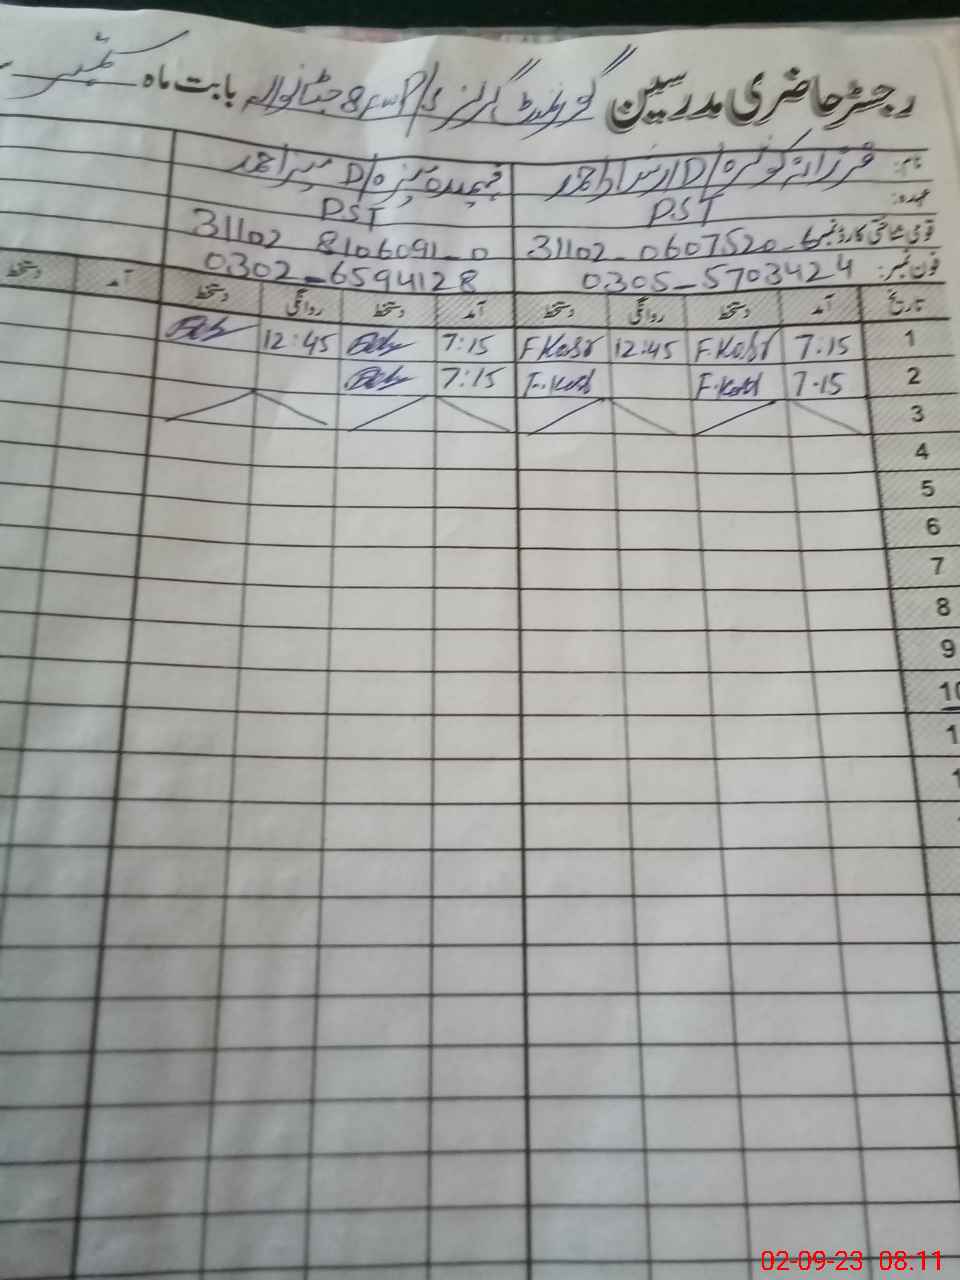 رجسٹر حاضری مدرسین گورنمنٹ گرلز P/S 8 جٹانوالہ بابت ماہ ستمبر
نام: فرزانہ کوثر D/O ارشاد احمد D/O احمد
عہدہ: PST PST
قومی شناختی کارڈ نمبر 31102-0607520-6 31102-8106091-0
فون نمبر: 0305-5703424 0302-6594128
تاریخ آمد دستخط روانگی دستخط آمد دستخط روانگی دستخط آمد دستخط
1 7:15 F.Kosr 12:45 F.Kosr 7:15 12:45
2 7:15 F.Kosr 7:15
3
4
5
6
7
8
9
10
02-09-23 08.11